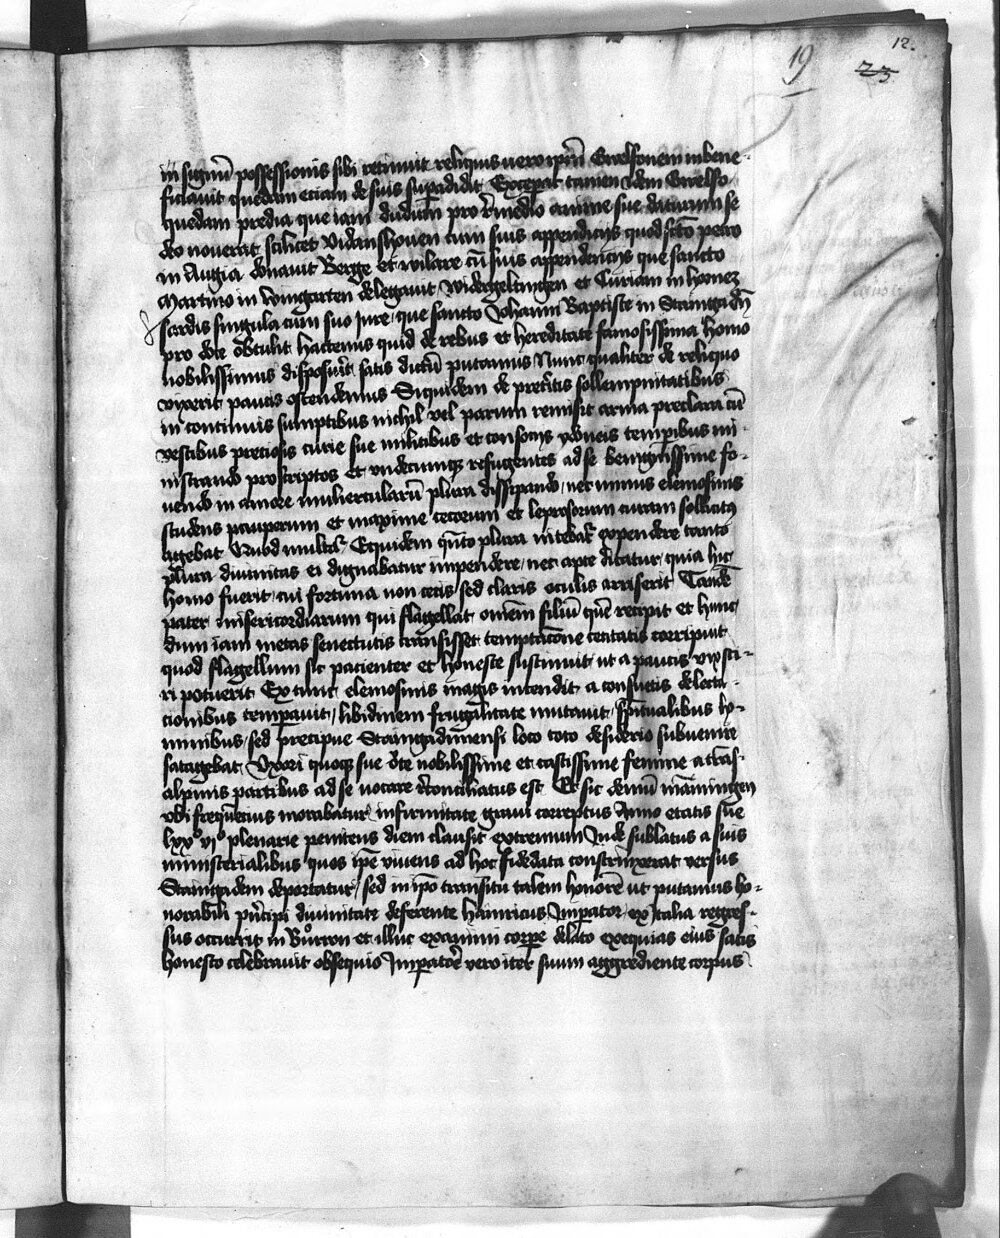 12.
19
23
in signū possessionis sibi retinuit reliquis vero ipm̄ Gwelfonem inbene-
ficiavit quedam etiam de suis suꝑaddidit Exceperat tamen idem Gwelfo
quedam predia que iam dudum pro remedio anime sue daturum se
deo noverat scilicet Vidanshoven cum suis appendicijs quod sc̄to petro
in Augia donavit Berge et wilare cū suis appendicijs que sancto
Martino in wingarten delegavit Widergeltingen et Curiam in honez
scardis singula cum suo Jure / que sancto Johanni Baptiste in Staingadē
pro dote obtulit Hactenus quid de rebus et hereditate famosissima homo
nobilissimus disposuit satis dictū putamus Nunc qualiter de reliquo
vixerit paucis ostendemus Siquidem de preteritis sollempnitatibus
in continuis sumptibus nichil vel parum remisit arma preclara cū
vestibus preciosis curie sue militibus et consocijs ydoneis temporibus mi-
nistrando proscriptos et vndecumqꝫ refugientes ad se benignissime fo-
vendo in amore muliercularū plura dissipando / nec minus elemosinis
studens pauperum et maxime cecorum et leprosorum curam sollicitus
agebat Quod multū Equidem qn̄to plura nitebat᷑ expendere tanto
plura divinitas ei dignabatur impendere / nec apte dicatur quia hic
homo fuerit / cui fortuna non cecis sed claris oculis arriserit Tandē
pater misericordiarum qui flagellat omēm filiū quē recipit et hunc
dum iam metas senectutis transisset temptacōne cecitatis corripuit
quod flagellum sic pacienter et honeste sustinuit ut a paucis vix sci-
ri potuerit Ex tunc elemosinis magis intendit a consuetis delecta-
cionibus temperavit / libidinem frugalitate mutavit / spiritualibus ho-
minibus / sed precipue Staingadimensi loco toto desiderio subvenire
satagebat Vxori quoqꝫ sue d̄te nobilissime et castissime femine a trās-
alpinis partibus ad se vocare reconciliatus est Et sic demū māmingen
vbi frequētius morabatur infirmitate gravi correptus Anno etatis sue
lxxᵒ vjᵒ plenarie penitens diem clausit extremum Inde sublatus a suis
ministerialibus quos ip̄e vivens ad hoc fide data constrinxerat versus
Staingadem deportatur / sed in ip̄o transitu talem honorē ut putamus ho-
norabili pn̄cipi divinitate deferente Hainricus Imperator ex Italia regres-
sus occurrit in Bürron et illuc exanimi corpe delato exequias eius satis
honesto celebravit obsequio Imperatore vero iter suum aggrediente corpus